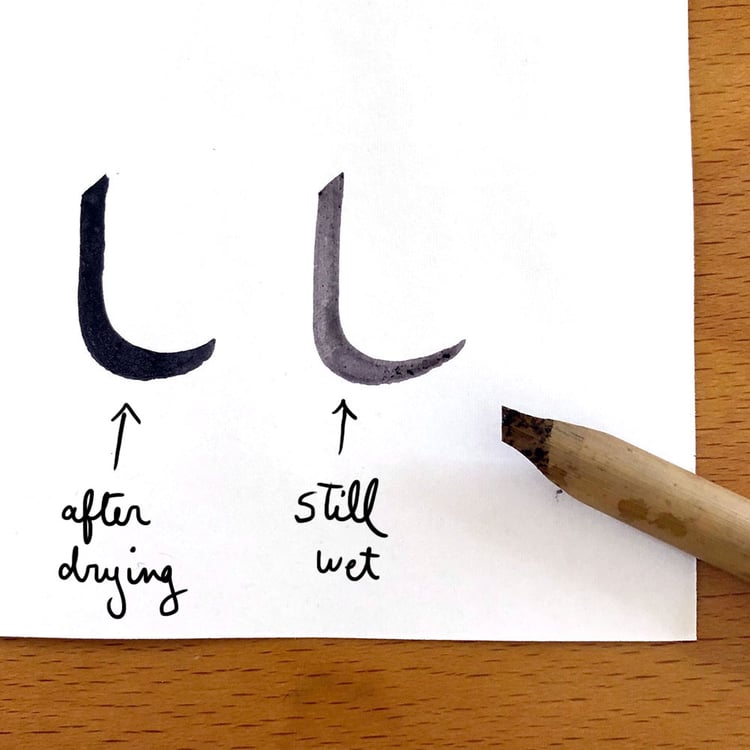 L L
after
drying
still
wet